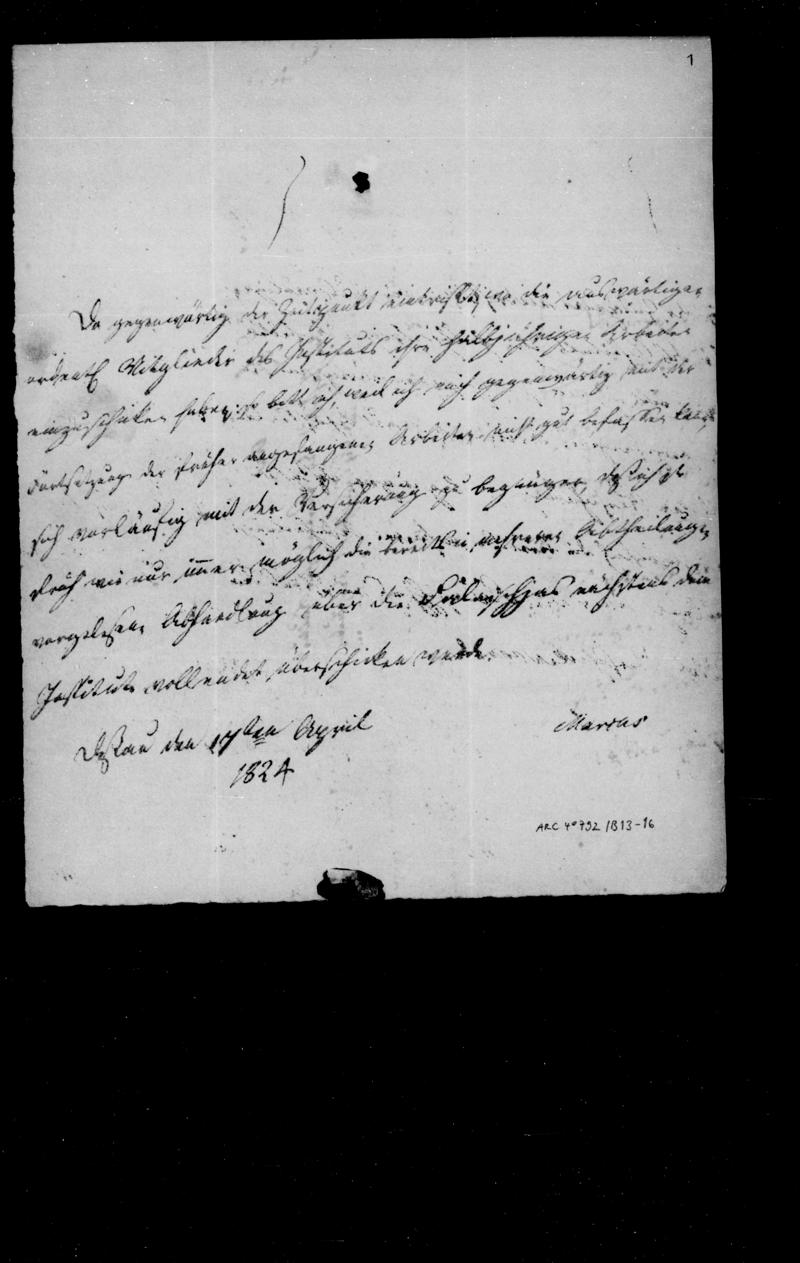 1
Da gegenwärtig der Zeitpunkt eintrifft, wo die auswärtigen
ordentl Mitglieder des Instituts ihre halbjährigen Arbeiten
einzuschicken haben, so bitt ich, weil ich mich gegenwärtig mit der
Fortsetzung der früher angefangenen Arbeiten nicht gut befassen kann,
sich vorläufig mit der Versicherung zu begnügen, daß ich so
früh wie nur immer möglich die bereits in mehreren Abtheilungen
vorgelesene Abhandlung über die nächstens dem
Institute vollendet überschicken werde.
Dessau den 17ten April
1824
Marcus
ARC 4° 792 / B13-16